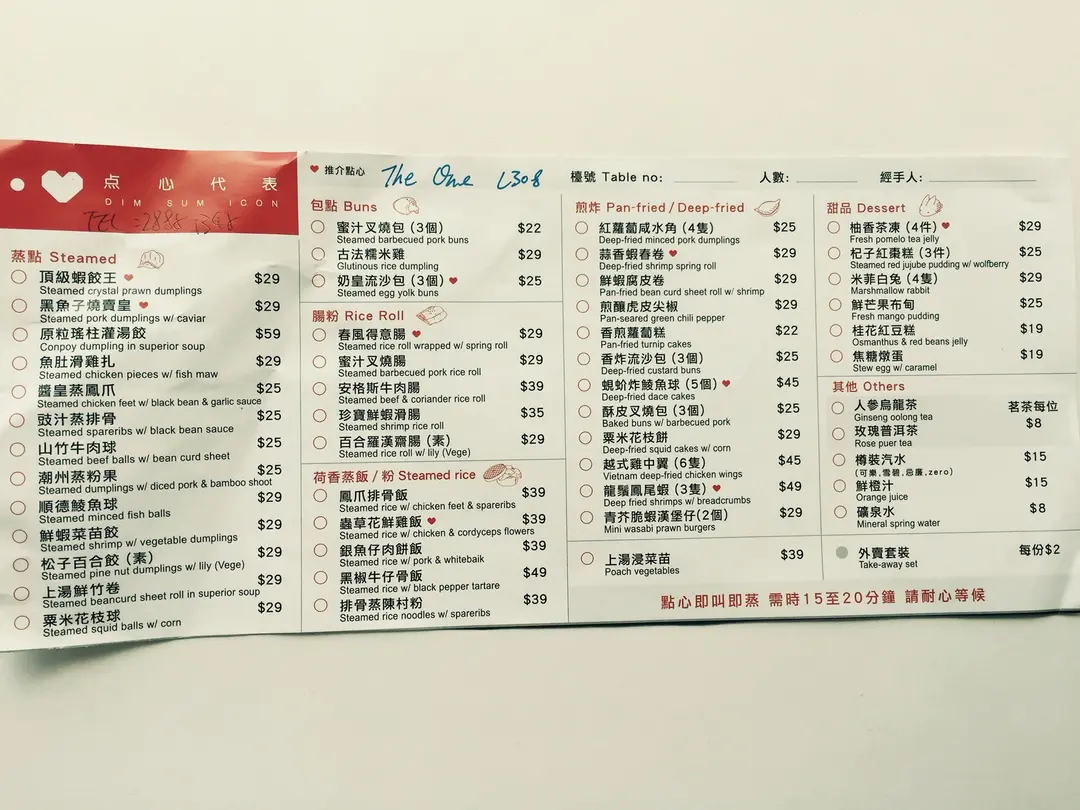 点心代表
DIM SUM ICON
蒸點 Steamed
頂級蝦餃王 ♥ $29
Steamed crystal prawn dumplings
黑魚子燒賣皇 ♥ $29
Steamed pork dumplings w/ caviar
原粒瑤柱灌湯餃 $59
Conpoy dumpling in superior soup
魚肚滑雞扎 $29
Steamed chicken pieces w/ fish maw
醬皇蒸鳳爪 $25
Steamed chicken feet w/ black bean & garlic sauce
豉汁蒸排骨 $25
Steamed spareribs w/ black bean sauce
山竹牛肉球 $25
Steamed beef balls w/ bean curd sheet
潮州蒸粉果 $25
Steamed dumplings w/ diced pork & bamboo shoot
順德鯪魚球 $29
Steamed minced fish balls
鮮蝦菜苗餃 $29
Steamed shrimp w/ vegetable dumplings
松子百合餃 (素) $29
Steamed pine nut dumplings w/ lily (Vege)
上湯鮮竹卷 $29
Steamed beancurd sheet roll in superior soup
粟米花枝球 $29
Steamed squid balls w/ corn
♥ 推介點心 The One L308
包點 Buns
蜜汁叉燒包 (3個) $22
Steamed barbecued pork buns
古法糯米雞 $29
Glutinous rice dumpling
奶皇流沙包 (3個) ♥ $29
Steamed egg yolk buns
腸粉 Rice Roll
春風得意腸 ♥ $29
Steamed rice roll wrapped w/ spring roll
蜜汁叉燒腸 $29
Steamed barbecued pork rice roll
安格斯牛肉腸 $39
Steamed beef & coriander rice roll
珍寶鮮蝦滑腸 $35
Steamed shrimp rice roll
百合羅漢齋腸 (素) $29
Steamed rice roll w/ lily (Vege)
荷香蒸飯 / 粉 Steamed rice
鳳爪排骨飯 $39
Steamed rice w/ chicken feet & spareribs
蟲草花鮮雞飯 ♥ $39
Steamed rice w/ chicken & cordyceps flowers
銀魚仔肉餅飯 $39
Steamed rice w/ pork & whitebaik
黑椒牛仔骨飯 $49
Steamed rice w/ black pepper tartare
排骨蒸陳村粉 $39
Steamed rice noodles w/ spareribs
檯號 Table no: 人數: 經手人:
煎炸 Pan-fried / Deep-fried
紅蘿蔔咸水角 (4隻) $25
Deep-fried minced pork dumplings
蒜香蝦春卷 ♥ $29
Deep-fried shrimp spring roll
鮮蝦腐皮卷 $29
Pan-fried bean curd sheet roll w/ shrimp
煎釀虎皮尖椒 $29
Pan-seared green chili pepper
香煎蘿蔔糕 $22
Pan-fried turnip cakes
香炸流沙包 (3個) $25
Deep-fried custard buns
蜆蚧炸鯪魚球 (5個) ♥ $45
Deep-fried dace cakes
酥皮叉燒包 (3個) $25
Baked buns w/ barbecued pork
粟米花枝餅 $29
Deep-fried squid cakes w/ corn
越式雞中翼 (6隻) $45
Vietnam deep-fried chicken wings
龍鬚鳳尾蝦 (3隻) ♥ $49
Deep fried shrimps w/ breadcrumbs
青芥脆蝦漢堡仔(2個) $29
Mini wasabi prawn burgers
上湯浸菜苗 $39
Poach vegetables
甜品 Dessert
柚香茶凍 (4件) ♥ $29
Fresh pomelo tea jelly
杞子紅棗糕 (3件) $25
Steamed red jujube pudding w/ wolfberry
米菲白兔 (4隻) $29
Marshmallow rabbit
鮮芒果布甸 $25
Fresh mango pudding
桂花紅豆糕 $19
Osmanthus & red beans jelly
焦糖燉蛋 $19
Stew egg w/ caramel
其他 Others
人參烏龍茶 茗茶每位
Ginseng oolong tea $8
玫瑰普洱茶
Rose puer tea
樽裝汽水 $15
(可樂,雪碧,忌廉,zero)
鮮橙汁 $15
Orange juice
礦泉水 $8
Mineral spring water
外賣套裝 每份$2
Take-away set
點心即叫即蒸 需時15至20分鐘 請耐心等候